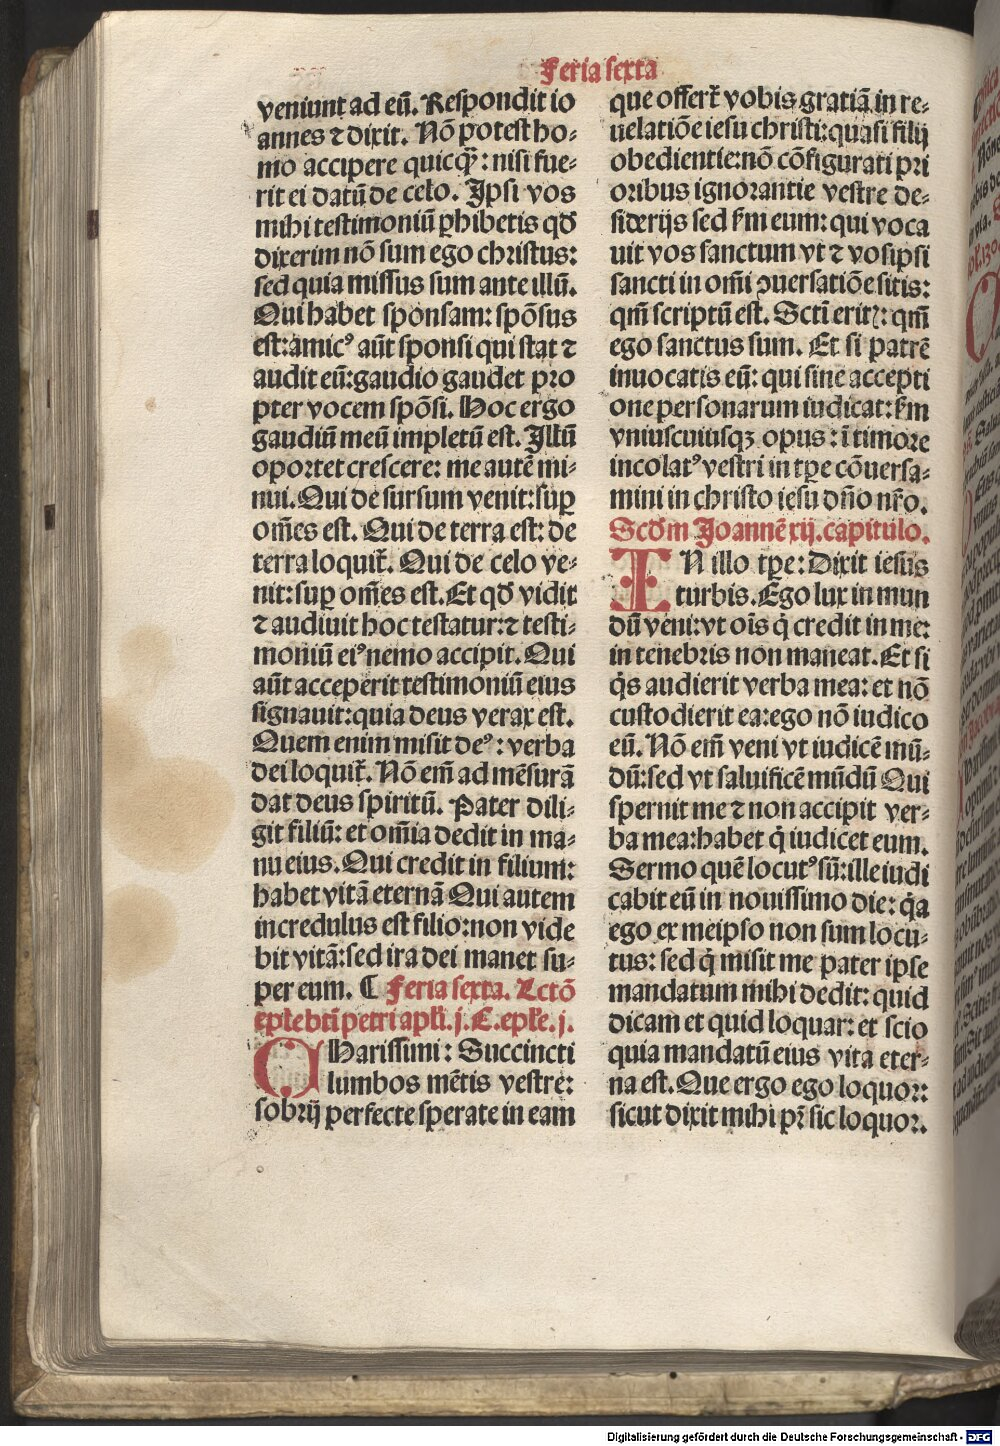 Feria sexta
veniunt ad eū. Respondit io
annes ⁊ dixit. Nō potest ho-
mo accipere quicq̄ȝ: nisi fue-
rit ei datū de celo. Ipsi vos
mihi testimoniū ꝑhibetis qđ
dixerim nō sum ego christus:
sed quia missus sum ante illū.
Qui habet sponsam: spōsus
est: amicꝰ aūt sponsi qui stat ⁊
audit eū: gaudio gaudet pro
pter vocem spōsi. Hoc ergo
gaudiū meū impletū est. Illū
oportet crescere: me autē mi-
nui. Qui de sursum venit: suꝑ
om̄es est. Qui de terra est: de
terra loquit̄. Qui de celo ve-
nit: suꝑ om̄es est. Et qđ vidit
⁊ audiuit hoc testatur: ⁊ testi-
moniū eiꝰ nemo accipit. Qui
aūt acceperit testimoniū eius
signauit: quia deus verax est.
Quem enim misit deꝰ: verba
dei loquit̄. Nō em̄ ad mēsurā
dat deus spiritū. Pater dili-
git filiū: et om̄ia dedit in ma-
nu eius. Qui credit in filium:
habet vitā eternā Qui autem
incredulus est filio: non vide
bit vitā: sed ira dei manet su-
per eum. ¶ Feria sexta. Lctō
ep̄le bt̄i petri apl̄i. j. C. ep̄le. j.
CHarissimi: Succincti
lumbos mētis vestre:
sobrij perfecte sperate in eam
que offert̄ vobis gratiā in re-
uelatiōe iesu christi: quasi filij
obedientie: nō cōfigurati pri
oribus ignorantie vestre de-
siderijs sed fm̄ eum: qui voca
uit vos sanctum vt ⁊ vos ipsi
sancti in om̄i ꝯuersatiōe sitis:
qm̄ scriptū est. Scti eritꝭ: qm̄
ego sanctus sum. Et si patrē
inuocatis eū: qui sine accepti
one personarum iudicat: fm̄
vniuscuiusqȝ opus: ī timore
incolatꝰ vestri in tꝑe cōuersa-
mini in christo iesu dn̄o nr̄o.
Scđm Joannē xij. capitulo.
IN illo tꝑe: Dixit iesus
turbis. Ego lux in mun
dū veni: vt ois̄ q̇ credit in me:
in tenebris non maneat. Et si
q̇s audierit verba mea: et nō
custodierit ea: ego nō iudico
eū. Nō em̄ veni vt iudicē mū-
dū: sed vt saluificē mūdū Qui
spernit me ⁊ non accipit ver-
ba mea: habet q̇ iudicet eum.
Sermo quē locutꝰ sū: ille iudi
cabit eū in nouissimo die: q̇a
ego ex meipso non sum locu-
tus: sed q̇ misit me pater ipse
mandatum mihi dedit: quid
dicam et quid loquar: et scio
quia mandatū eius vita eter-
na est. Que ergo ego loquor:
sicut dixit mihi pr̄ sic loquor.
Digitalisierung gefördert durch die Deutsche Forschungsgemeinschaft - DFG